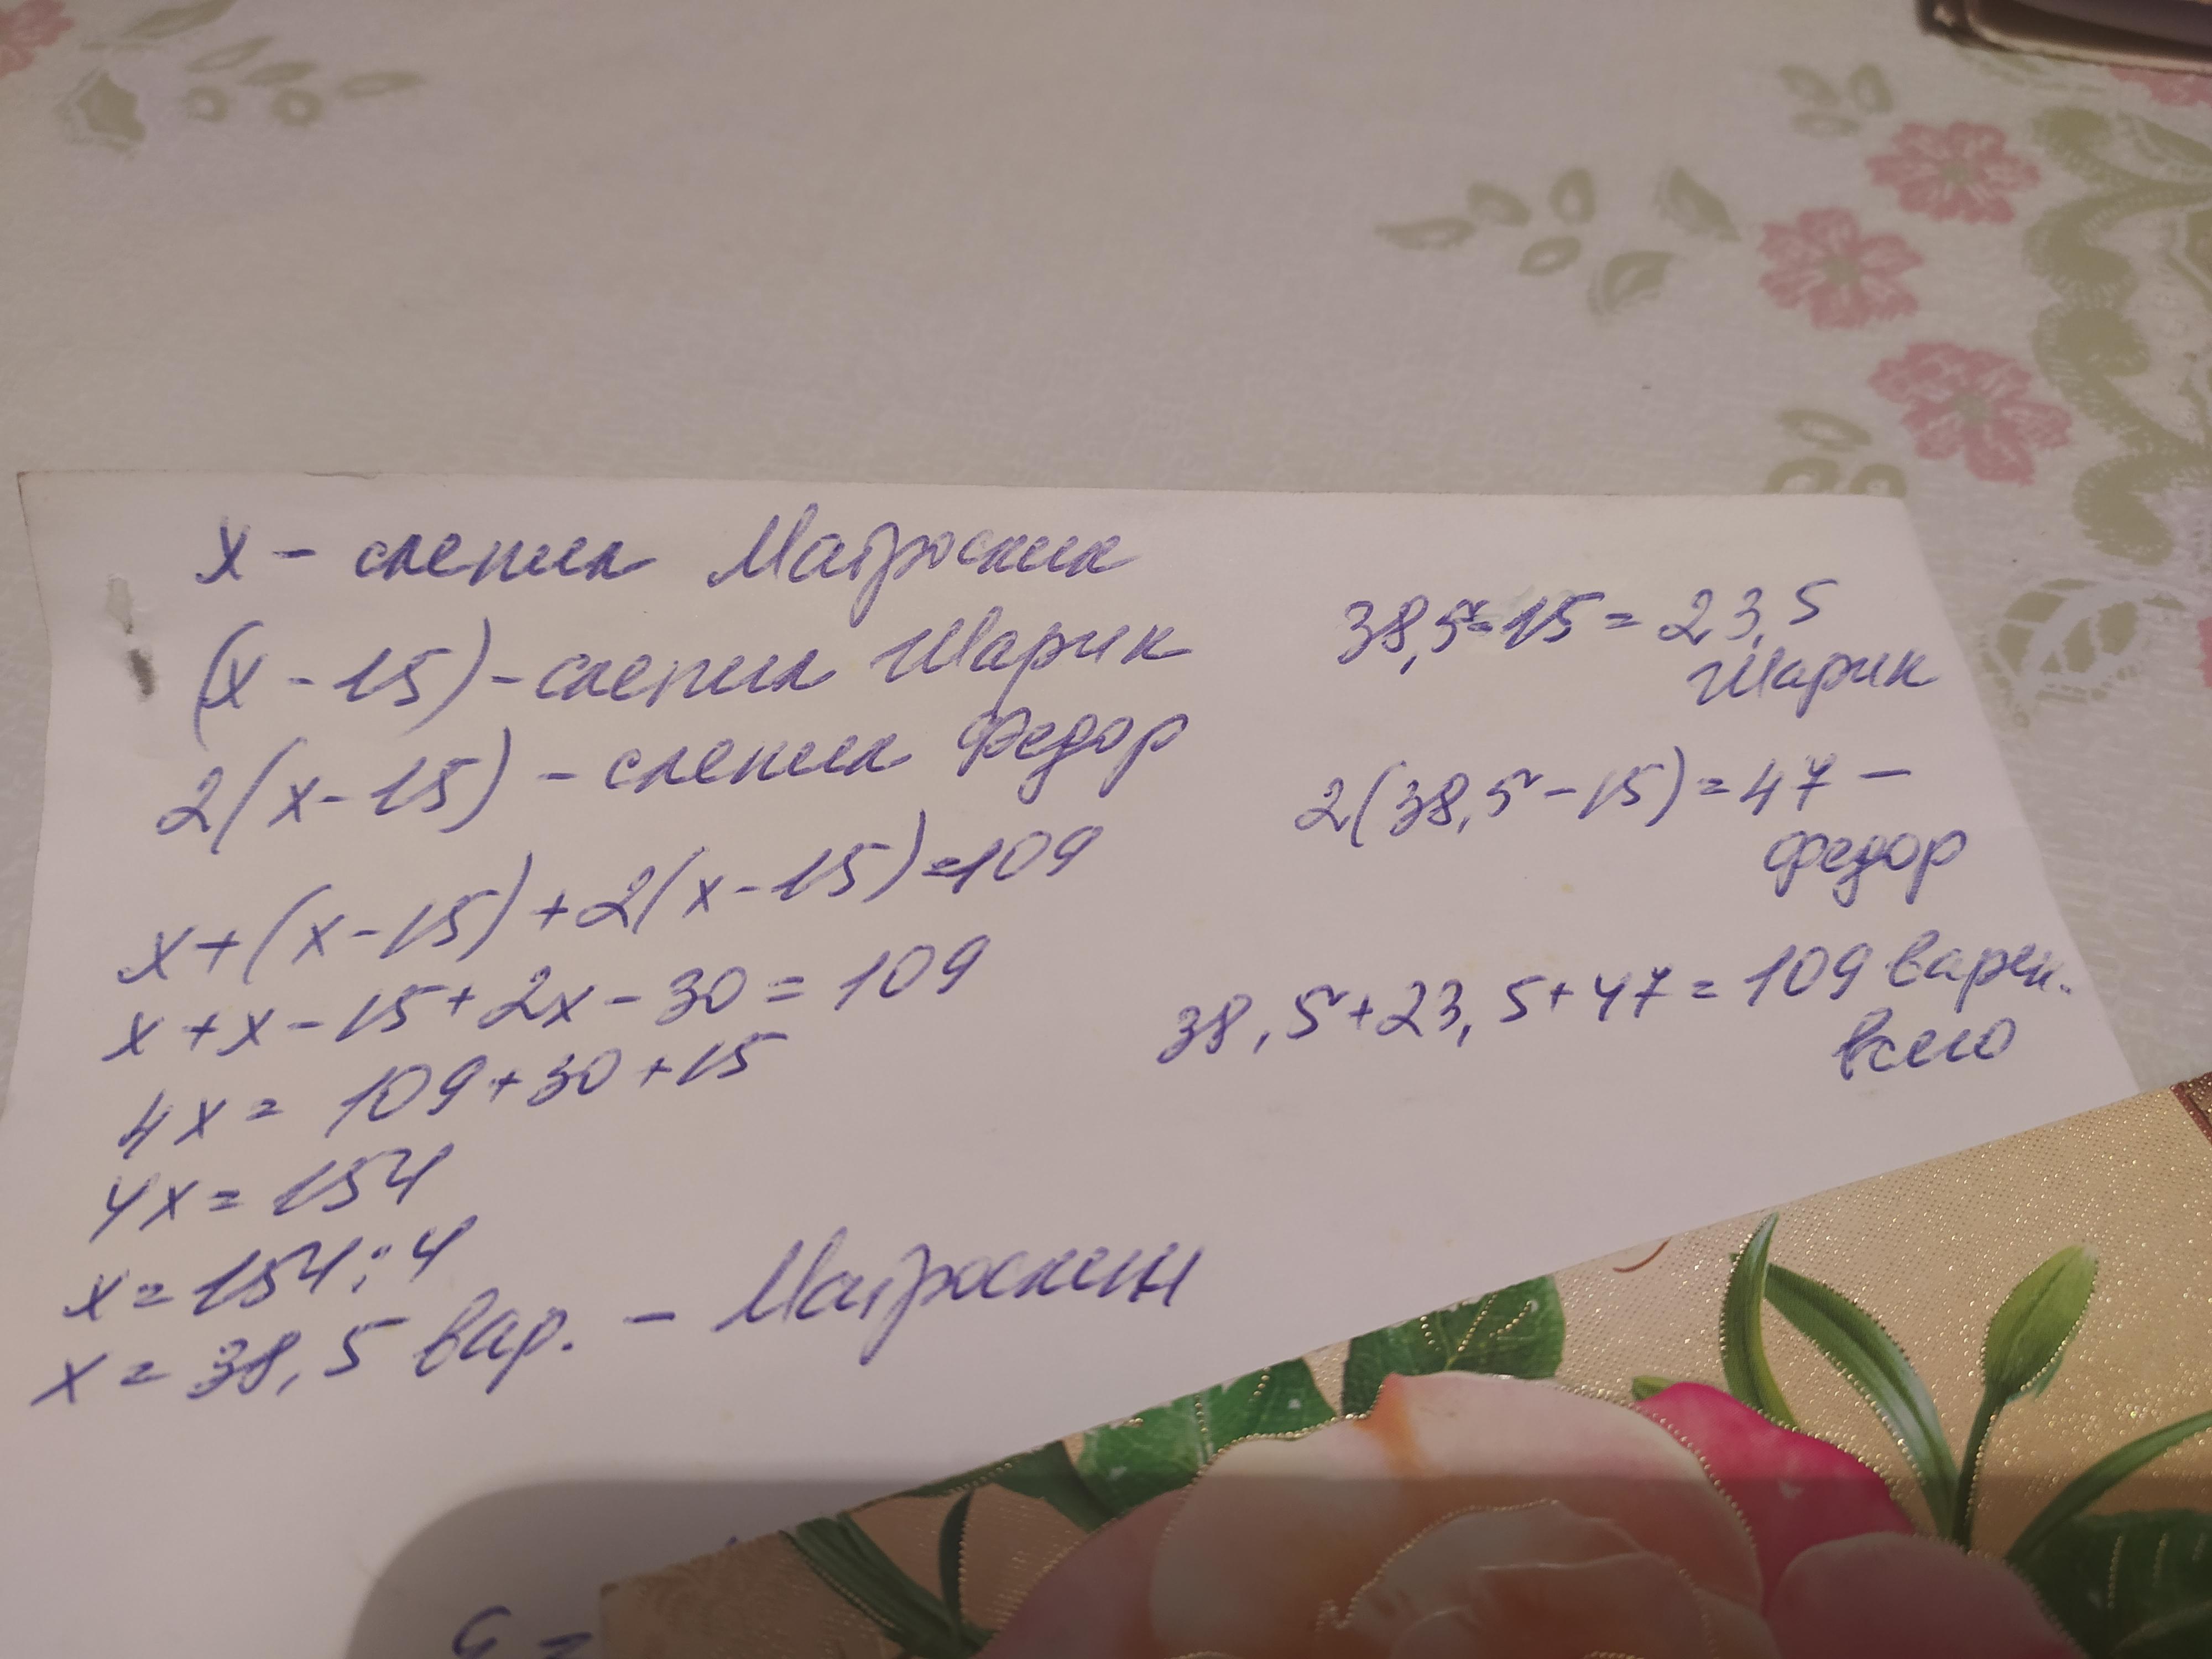 х - слепил Матроскин
(х - 15) - слепил Шарик
2(х - 15) - слепил Федор
х + (х - 15) + 2(х - 15) = 109
х + х - 15 + 2х - 30 = 109
4х = 109 + 30 + 15
4х = 154
х = 154 : 4
х = 38,5 вар. - Матроскин
38,5 - 15 = 23,5
Шарик
2(38,5 - 15) = 47 -
Федор
38,5 + 23,5 + 47 = 109 варен.
всего